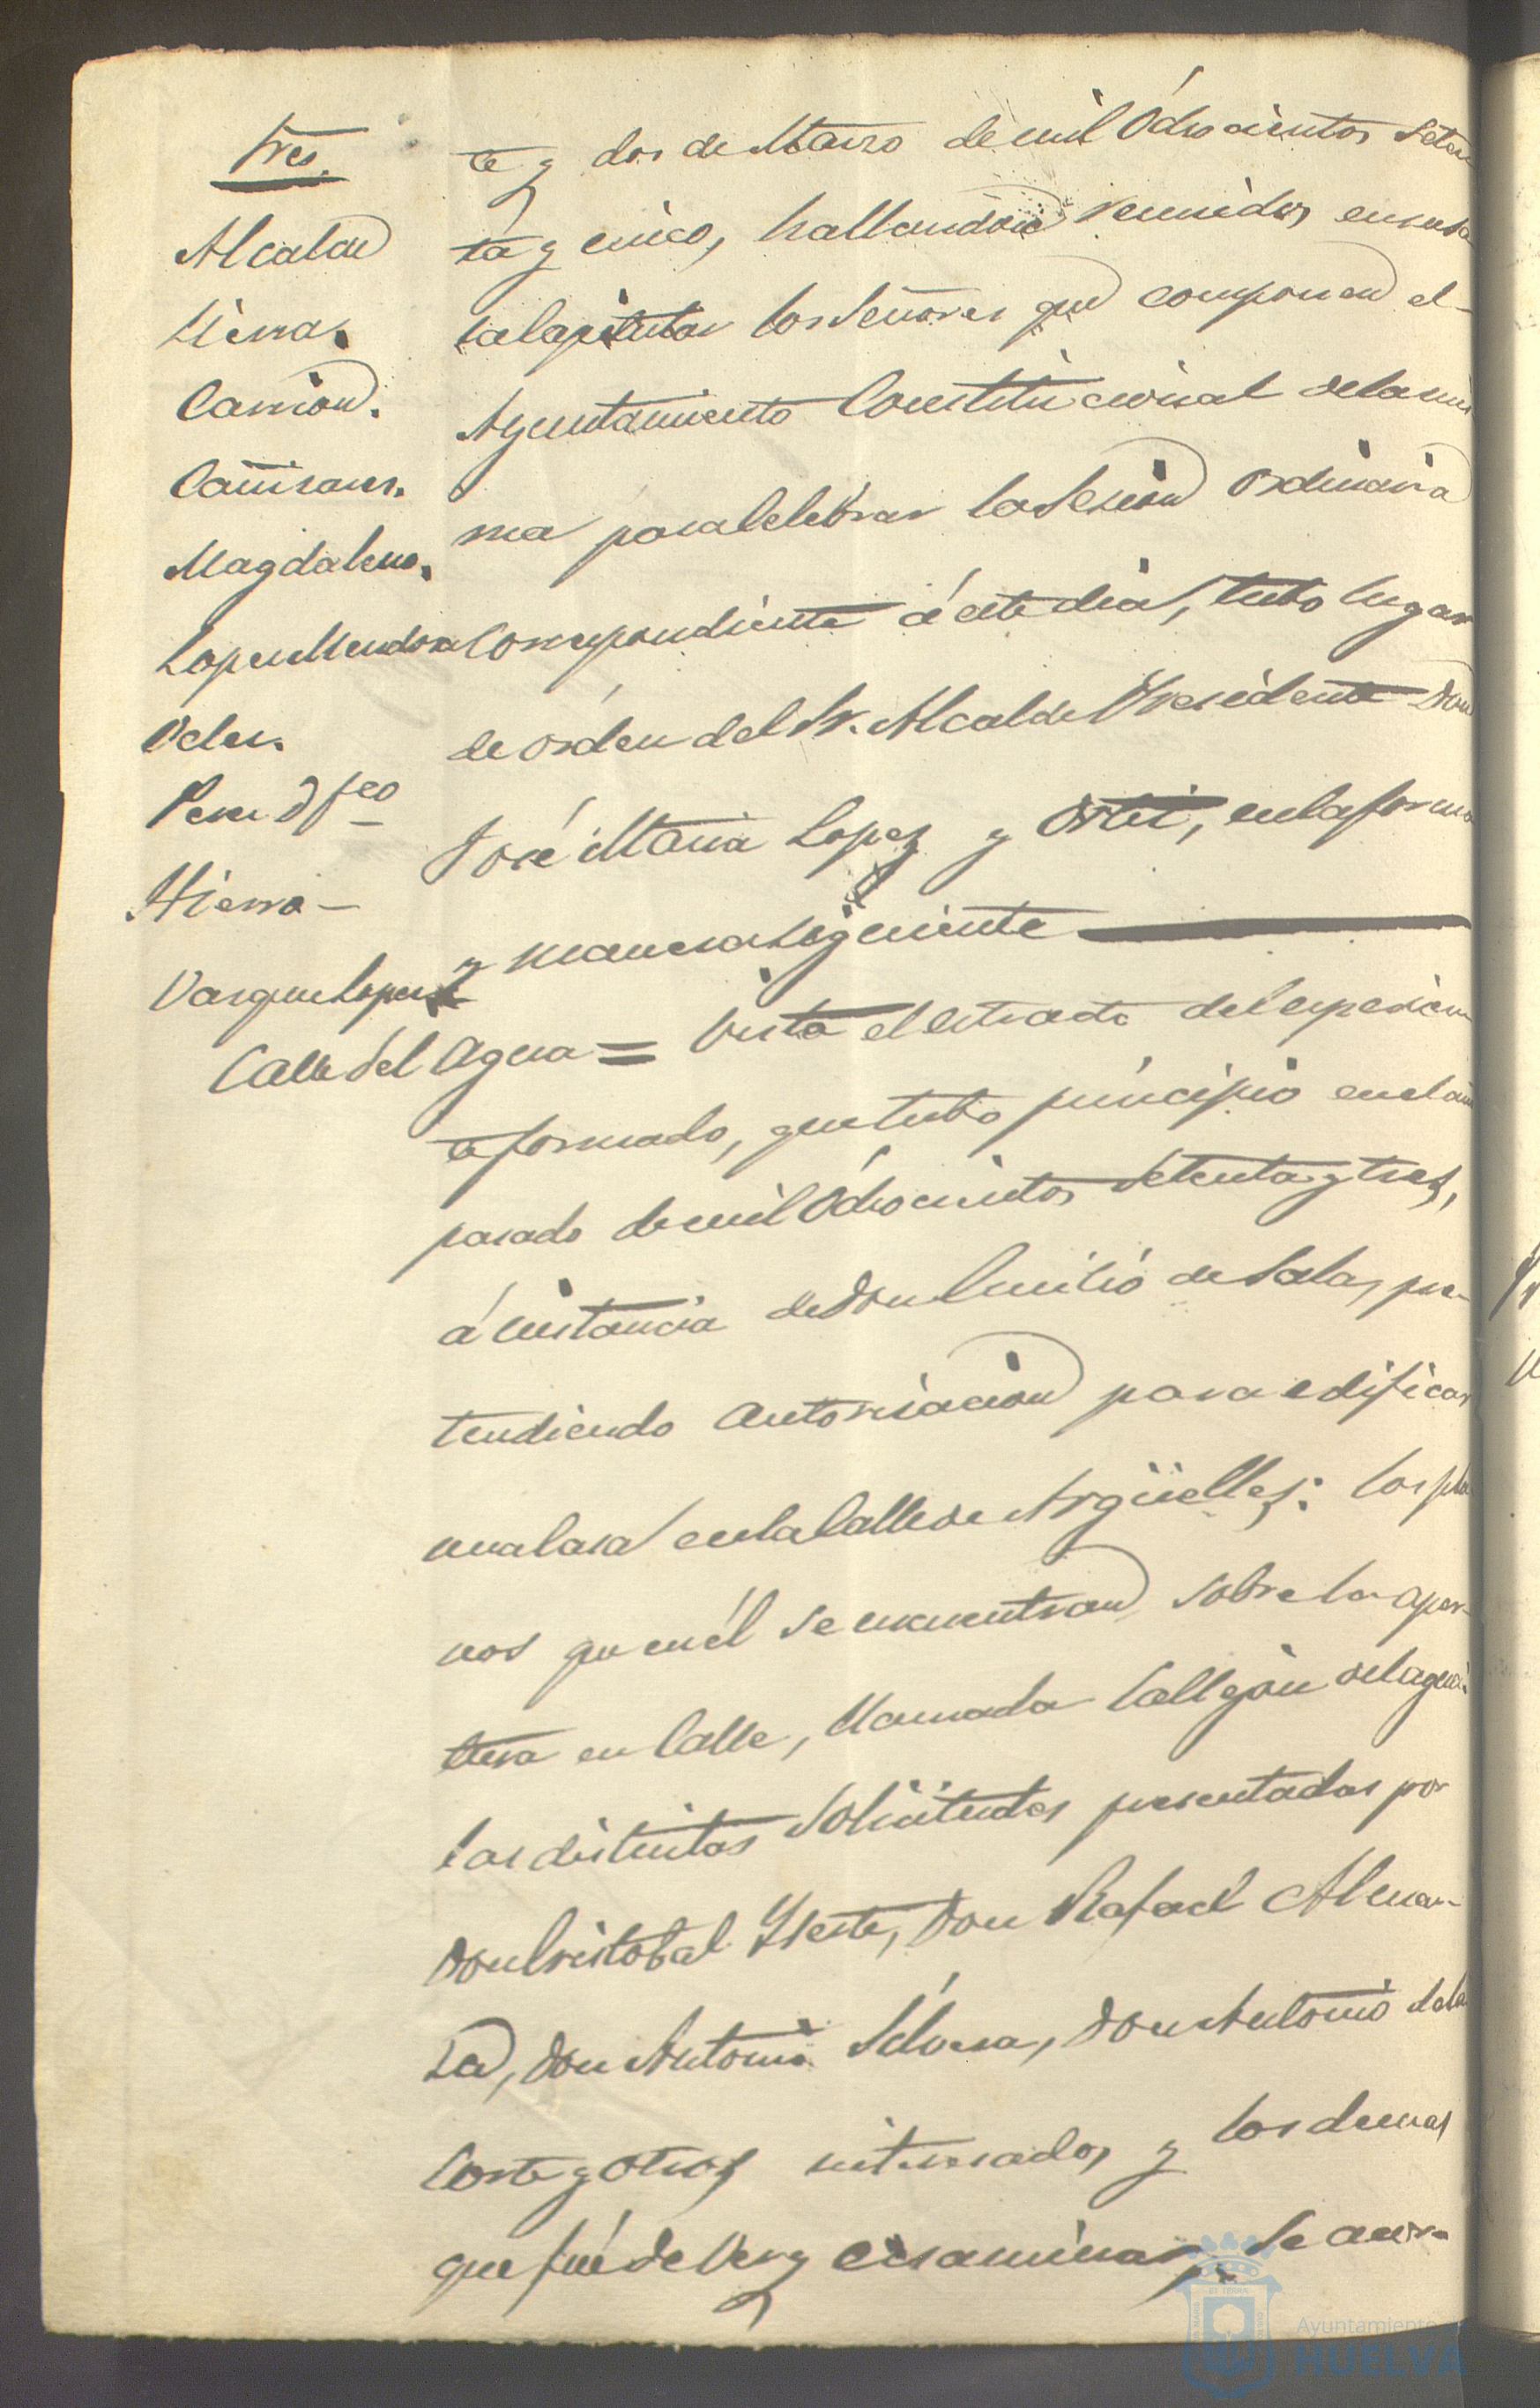 Sres.
Alcalde
Sierra.
Carrion.
Cañisares.
Magdaleno.
Lopez Mendoza
Velez.
Perez D. Fco
Hierro –
Vazquez Lopez
te y dos de Marzo de mil Ochocientos Seten-
ta y cinco, hallandose reunidos en su Sa-
la Capitular los Señores que componen el
Ayuntamiento Constitucional de la mis
ma para Celebrar la Sesion Ordinaria
Correspondiente á este dia, tubo lugar
de órden del Sr. Alcalde Presidente Don
José Maria Lopez y Ortiz, en la forma
y manera Siguiente
Calle del Agua = Vista el estracto del espedien
te formado, que tubo principio en el año
pasado de mil Ochocientos Setenta y tres,
á instancia de Don Emilio de Salas, pre-
tendiendo autorisacion para edificar
una Casa en la Calle de Argüelles: los pla
nos que en él se encuentran sobre la aper-
tura en Calle, llamada Callejon del agua:
las distintas Solicitudes presentadas por
Don Cristobal Yleste, Don Rafael Alman-
sa, Don Antonio Silvera, Don Antonio de la
Corte y otros interesados, y los demas
que fué de Ver y ecsaminar, Se acor-
Ayuntamiento
HUELVA